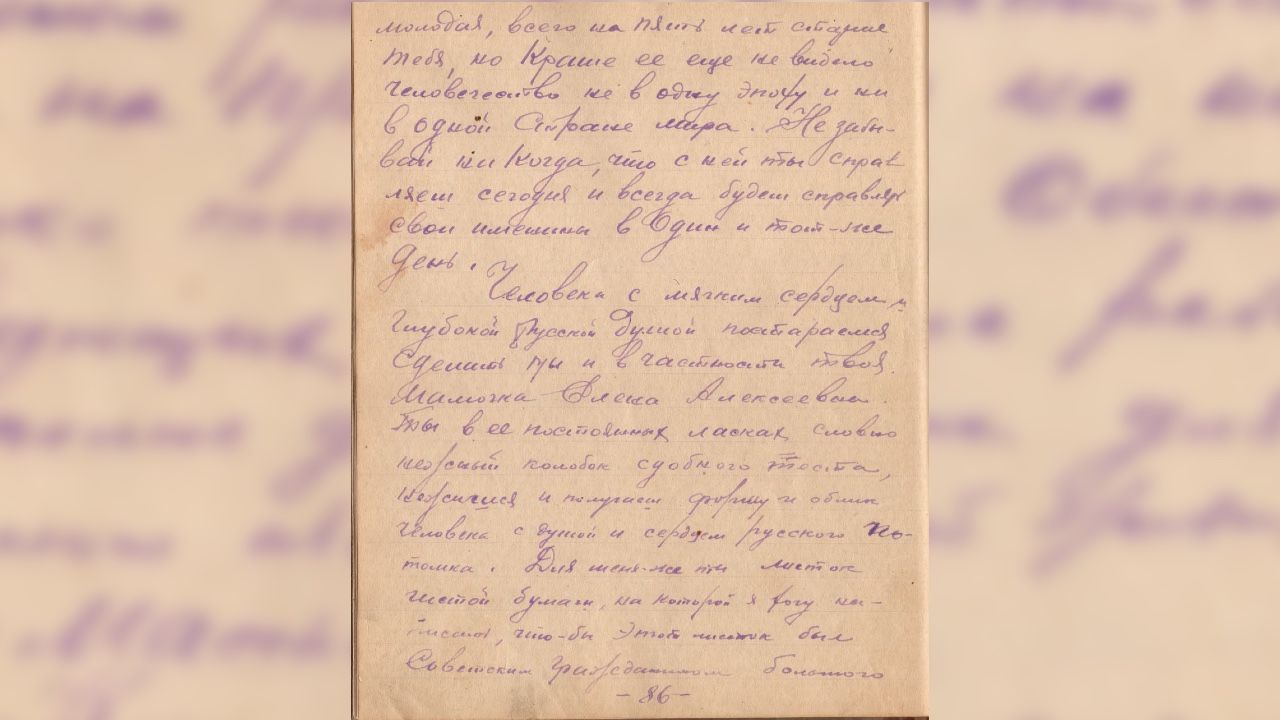 молодая, всего на пять лет старше
тебя, но Краше ее еще не видело
Человечество не в одну эпоху и ни
в одной Стране мира. Не забы-
вай ни Когда, что с ней ты справ
ляеш сегодня и всегда будеш справлять
свои именины в Один и тот-же
День.
Человека с мягким сердцем и
Глубокой Русской Душой постараемся
Сделать мы и в частности твоя
Мамочка Елена Алексеевна.
Ты в ее постоянных ласках, словно
нежный колобок сдобного теста,
нежишся и получаеш форму и облик
Человека с душой и сердцем русского по-
томка. Для меня-же ты листок
чистой бумаги, на которой я хочу на-
писать, что-бы этот листок был
Советским Гражданином большого
-86-